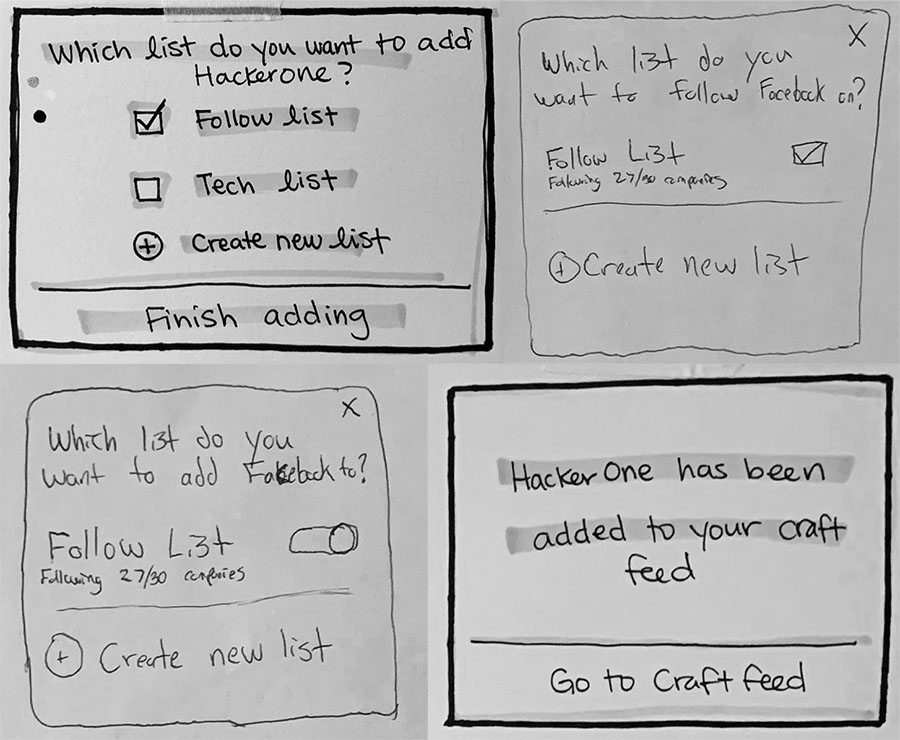 Which list do you want to add
Hackerone?
Follow list
Tech list
Create new list
Finish adding
X
Which list do you
want to follow Facebook on?
Follow List
Following 27/30 companies
Create new list
X
Which list do you
want to add Facebook to?
Follow List
Following 27/30 companies
Create new list
HackerOne has been
added to your craft
feed
Go to Craft feed